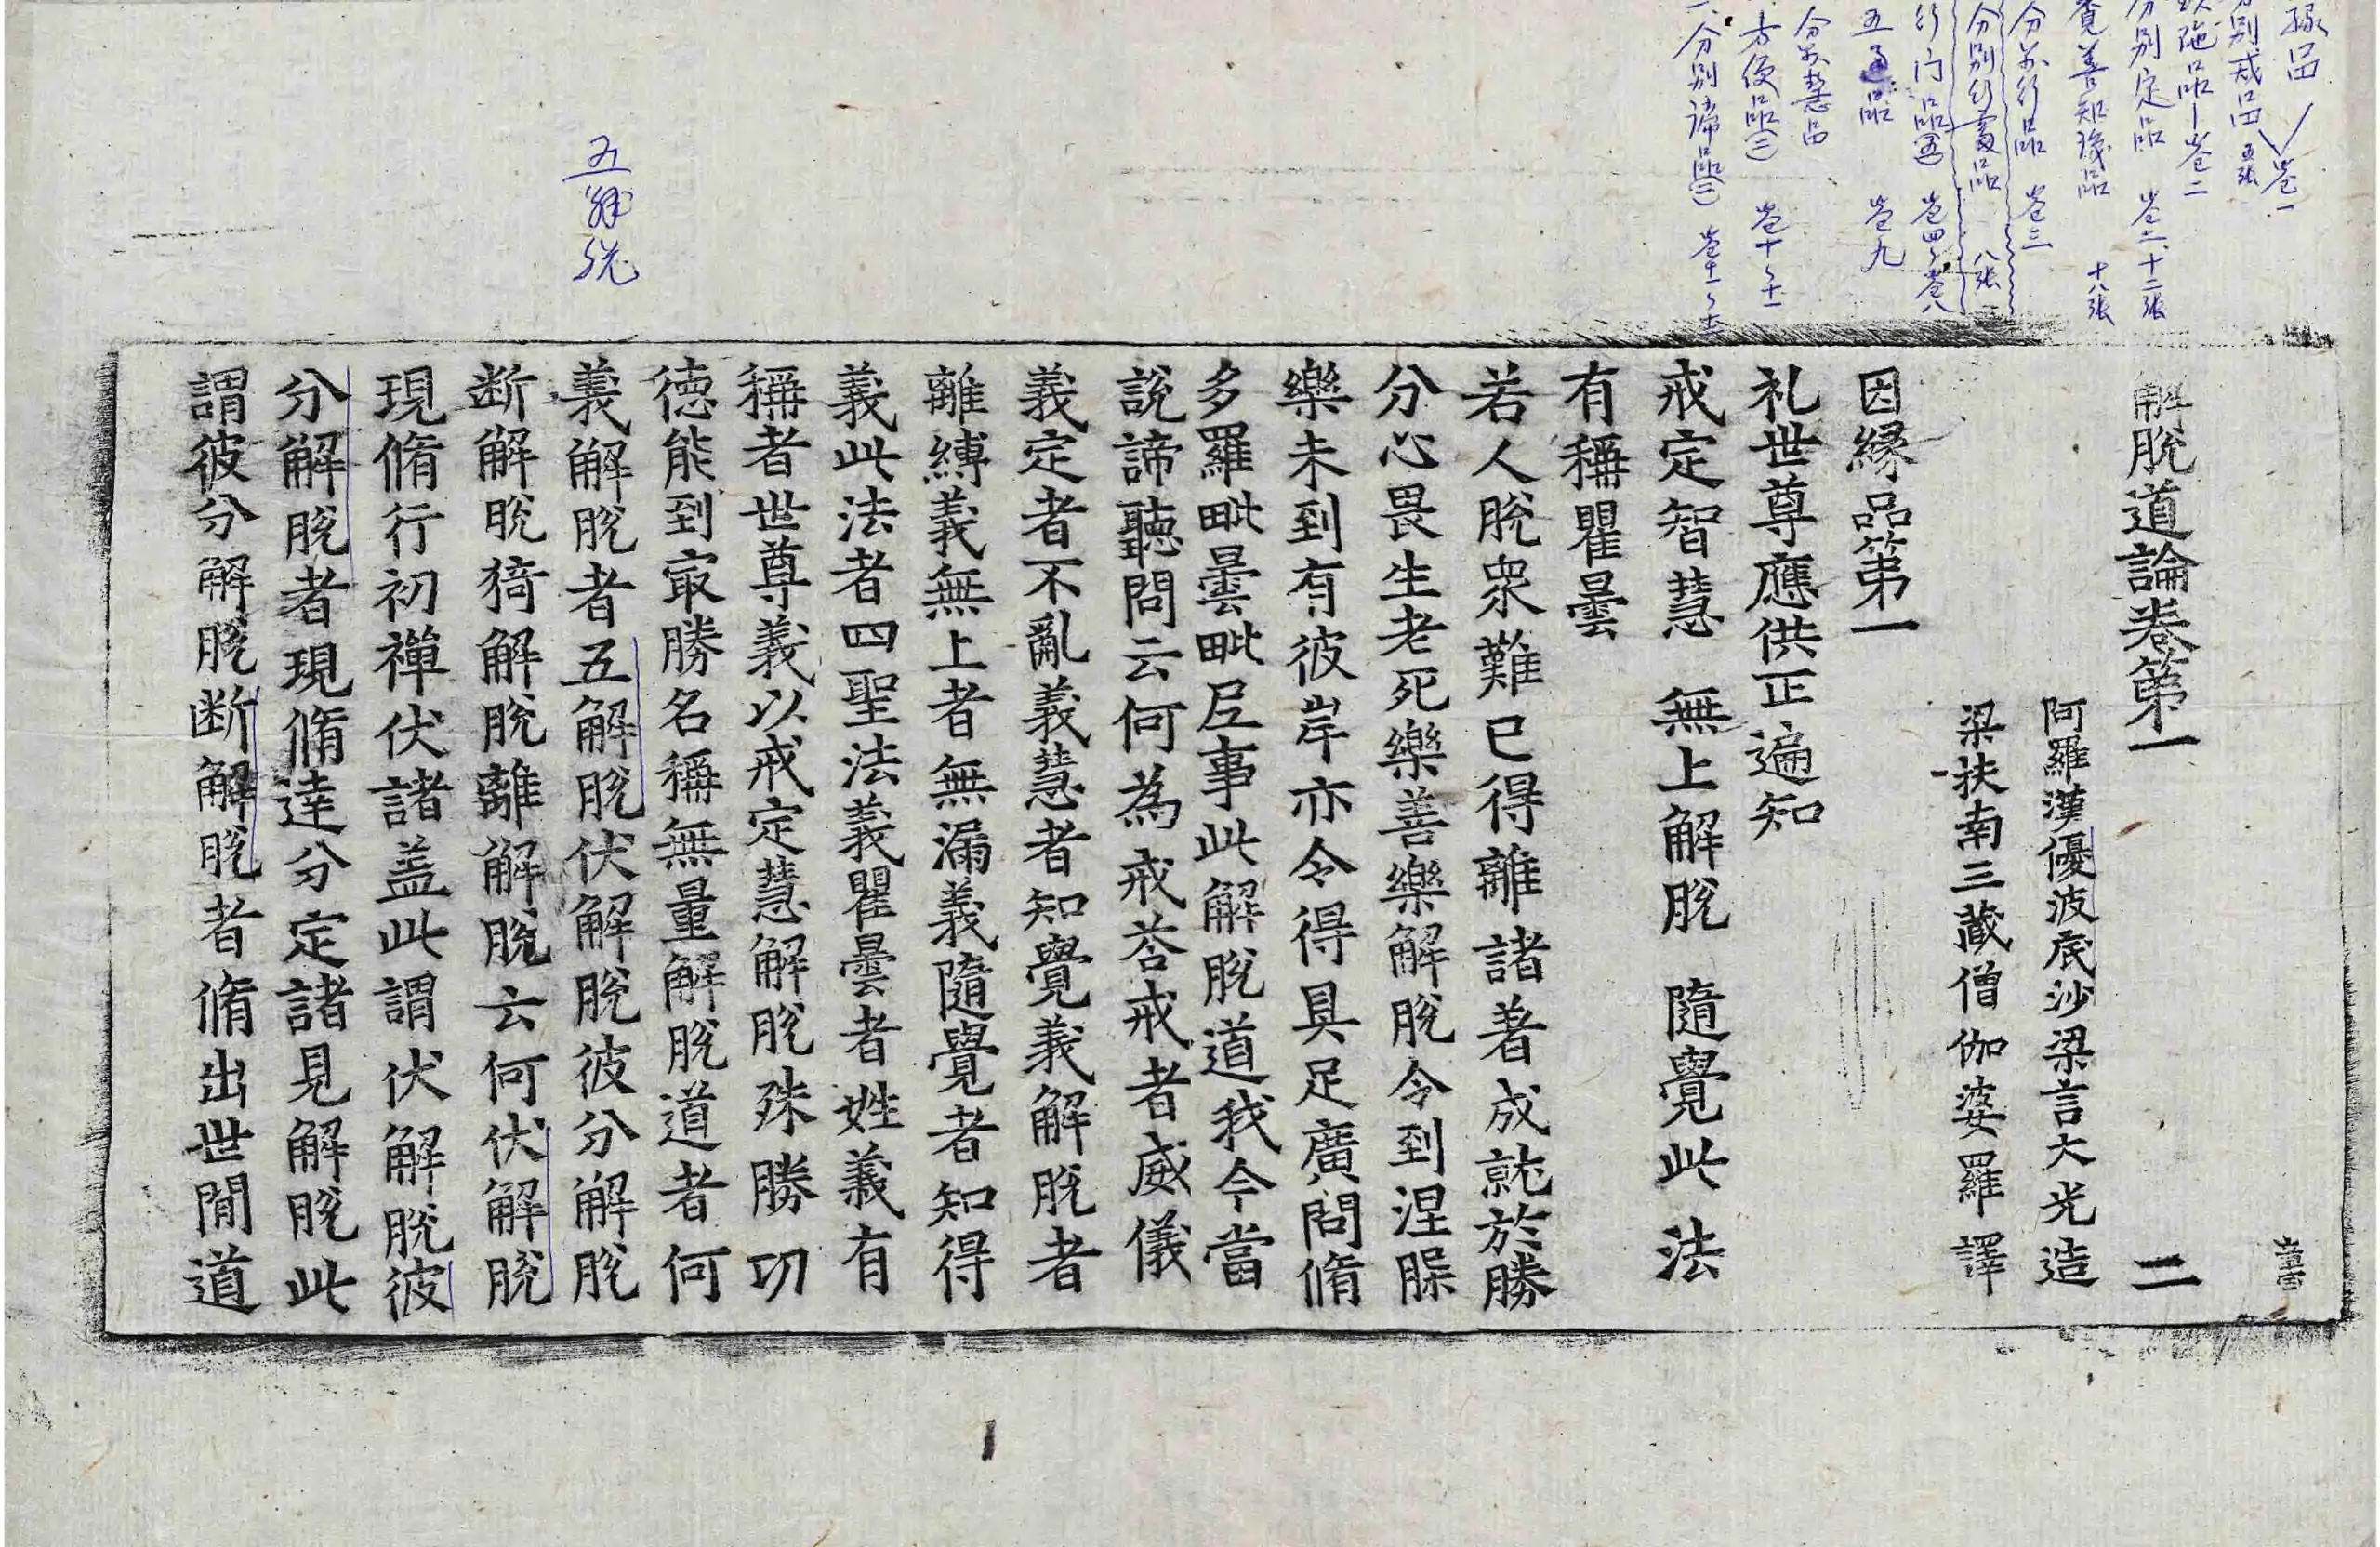 縁品
別戒品 五張 卷一
陁品 卷二
分別定品 卷二、十二張
覓善知識品 十八張
分别行品 卷三
分別行處品 八張
行门品(五) 卷四、卷八
五通品 卷九
分别慧品
方便品(三) 卷十、十一
分別諦品(二) 卷十一、十二
五解脱
解脫道論卷第一 二
阿羅漢優波底沙梁言大光造
梁扶南三藏僧伽婆羅譯
因緣品第一
礼世尊應供正遍知
戒定智慧 無上解脫 隨覺此法
有稱瞿曇
若人脫衆難已得離諸著成就於勝
分心畏生老死樂善樂解脫令到涅槃
樂未到有彼岸亦令得具足廣問脩
多羅毗曇毗尼事此解脫道我今當
說諦聽問云何為戒荅戒者威儀
義定者不亂義慧者知覺義解脫者
離縛義無上者無漏義隨覺者知得
義此法者四聖法義瞿曇者姓義有
稱者世尊義以戒定慧解脫殊勝功
德能到冣勝名稱無量解脫道者何
義解脫者五解脫伏解脫彼分解脫
断解脫猗解脫離解脫云何伏解脫
現脩行初禪伏諸盖此謂伏解脫彼
分解脫者現脩達分定諸見解脫此
謂彼分解脫断解脫者脩出世間道